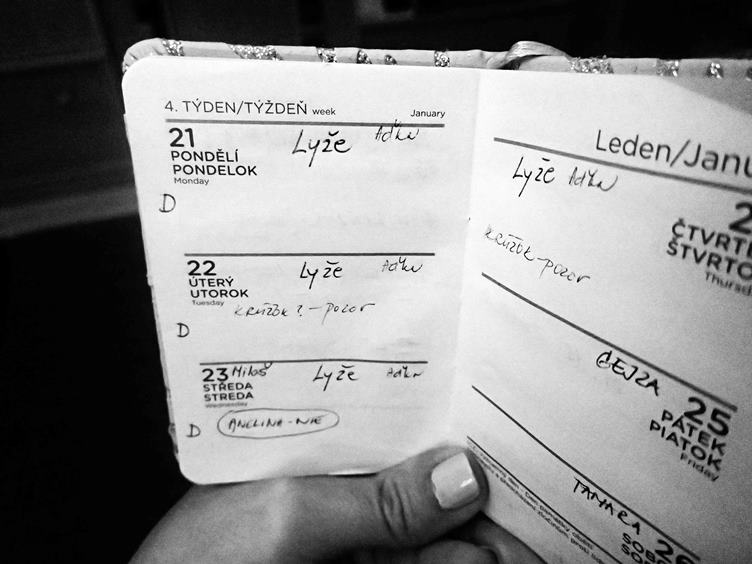 4. TÝDEN/TÝŽDEŇ week January
21 Lyže Aďka
PONDĚLÍ
PONDELOK
Monday
D
22 Lyže Aďka
ÚTERÝ
UTOROK
Tuesday
KRÚŽOK ? - POZOR
D
23 Miloš Lyže Aďka
STŘEDA
STREDA
Wednesday
D ANELINA - NIE
Leden/Janu
Lyže Aďka
2
ČTVRT
ŠTVRTO
Thursd
KRÚŽOK - POZOR
GEJZA
25
PÁTEK
PIATOK
Friday
TAMARA
26
SOBO
SOB